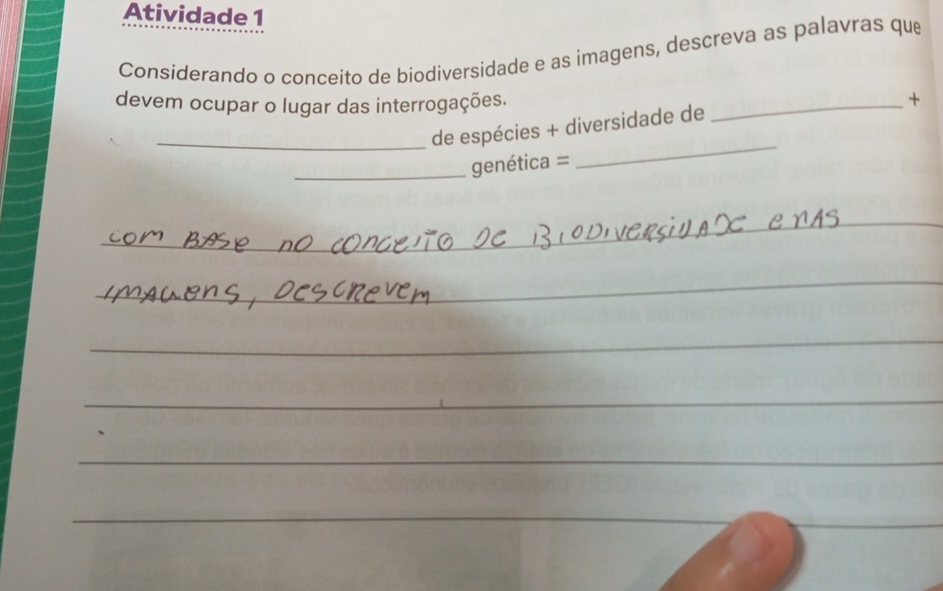 Atividade 1
Considerando o conceito de biodiversidade e as imagens, descreva as palavras que
devem ocupar o lugar das interrogações.
____________ de espécies + diversidade de ____________ +
____________ genética = ____________
com BASe no conceito De BIODIVERSIDADE e nAS
IMAGens, DesCRevem